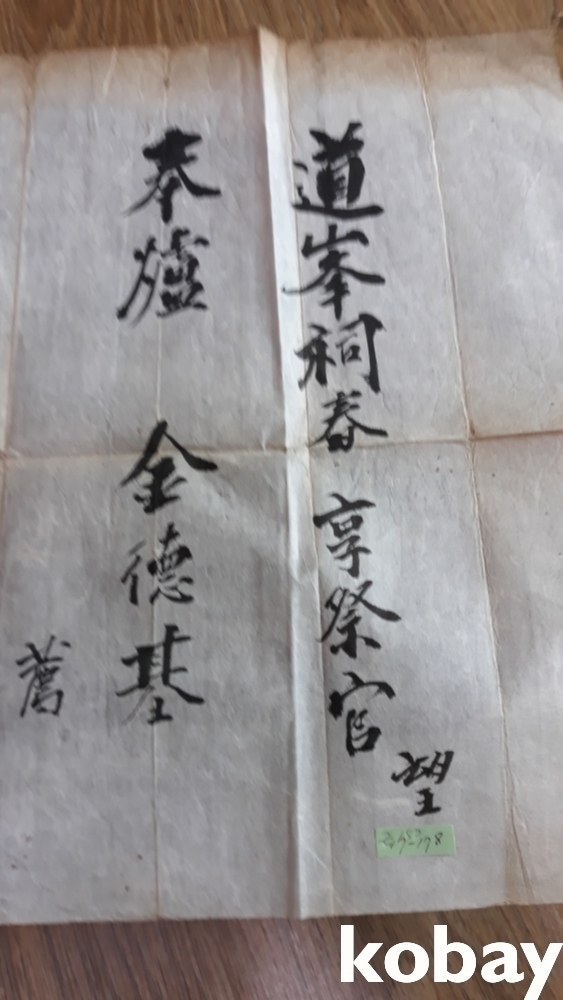 道峯祠春享祭官
望
奉爐 金德基
薦
kobay